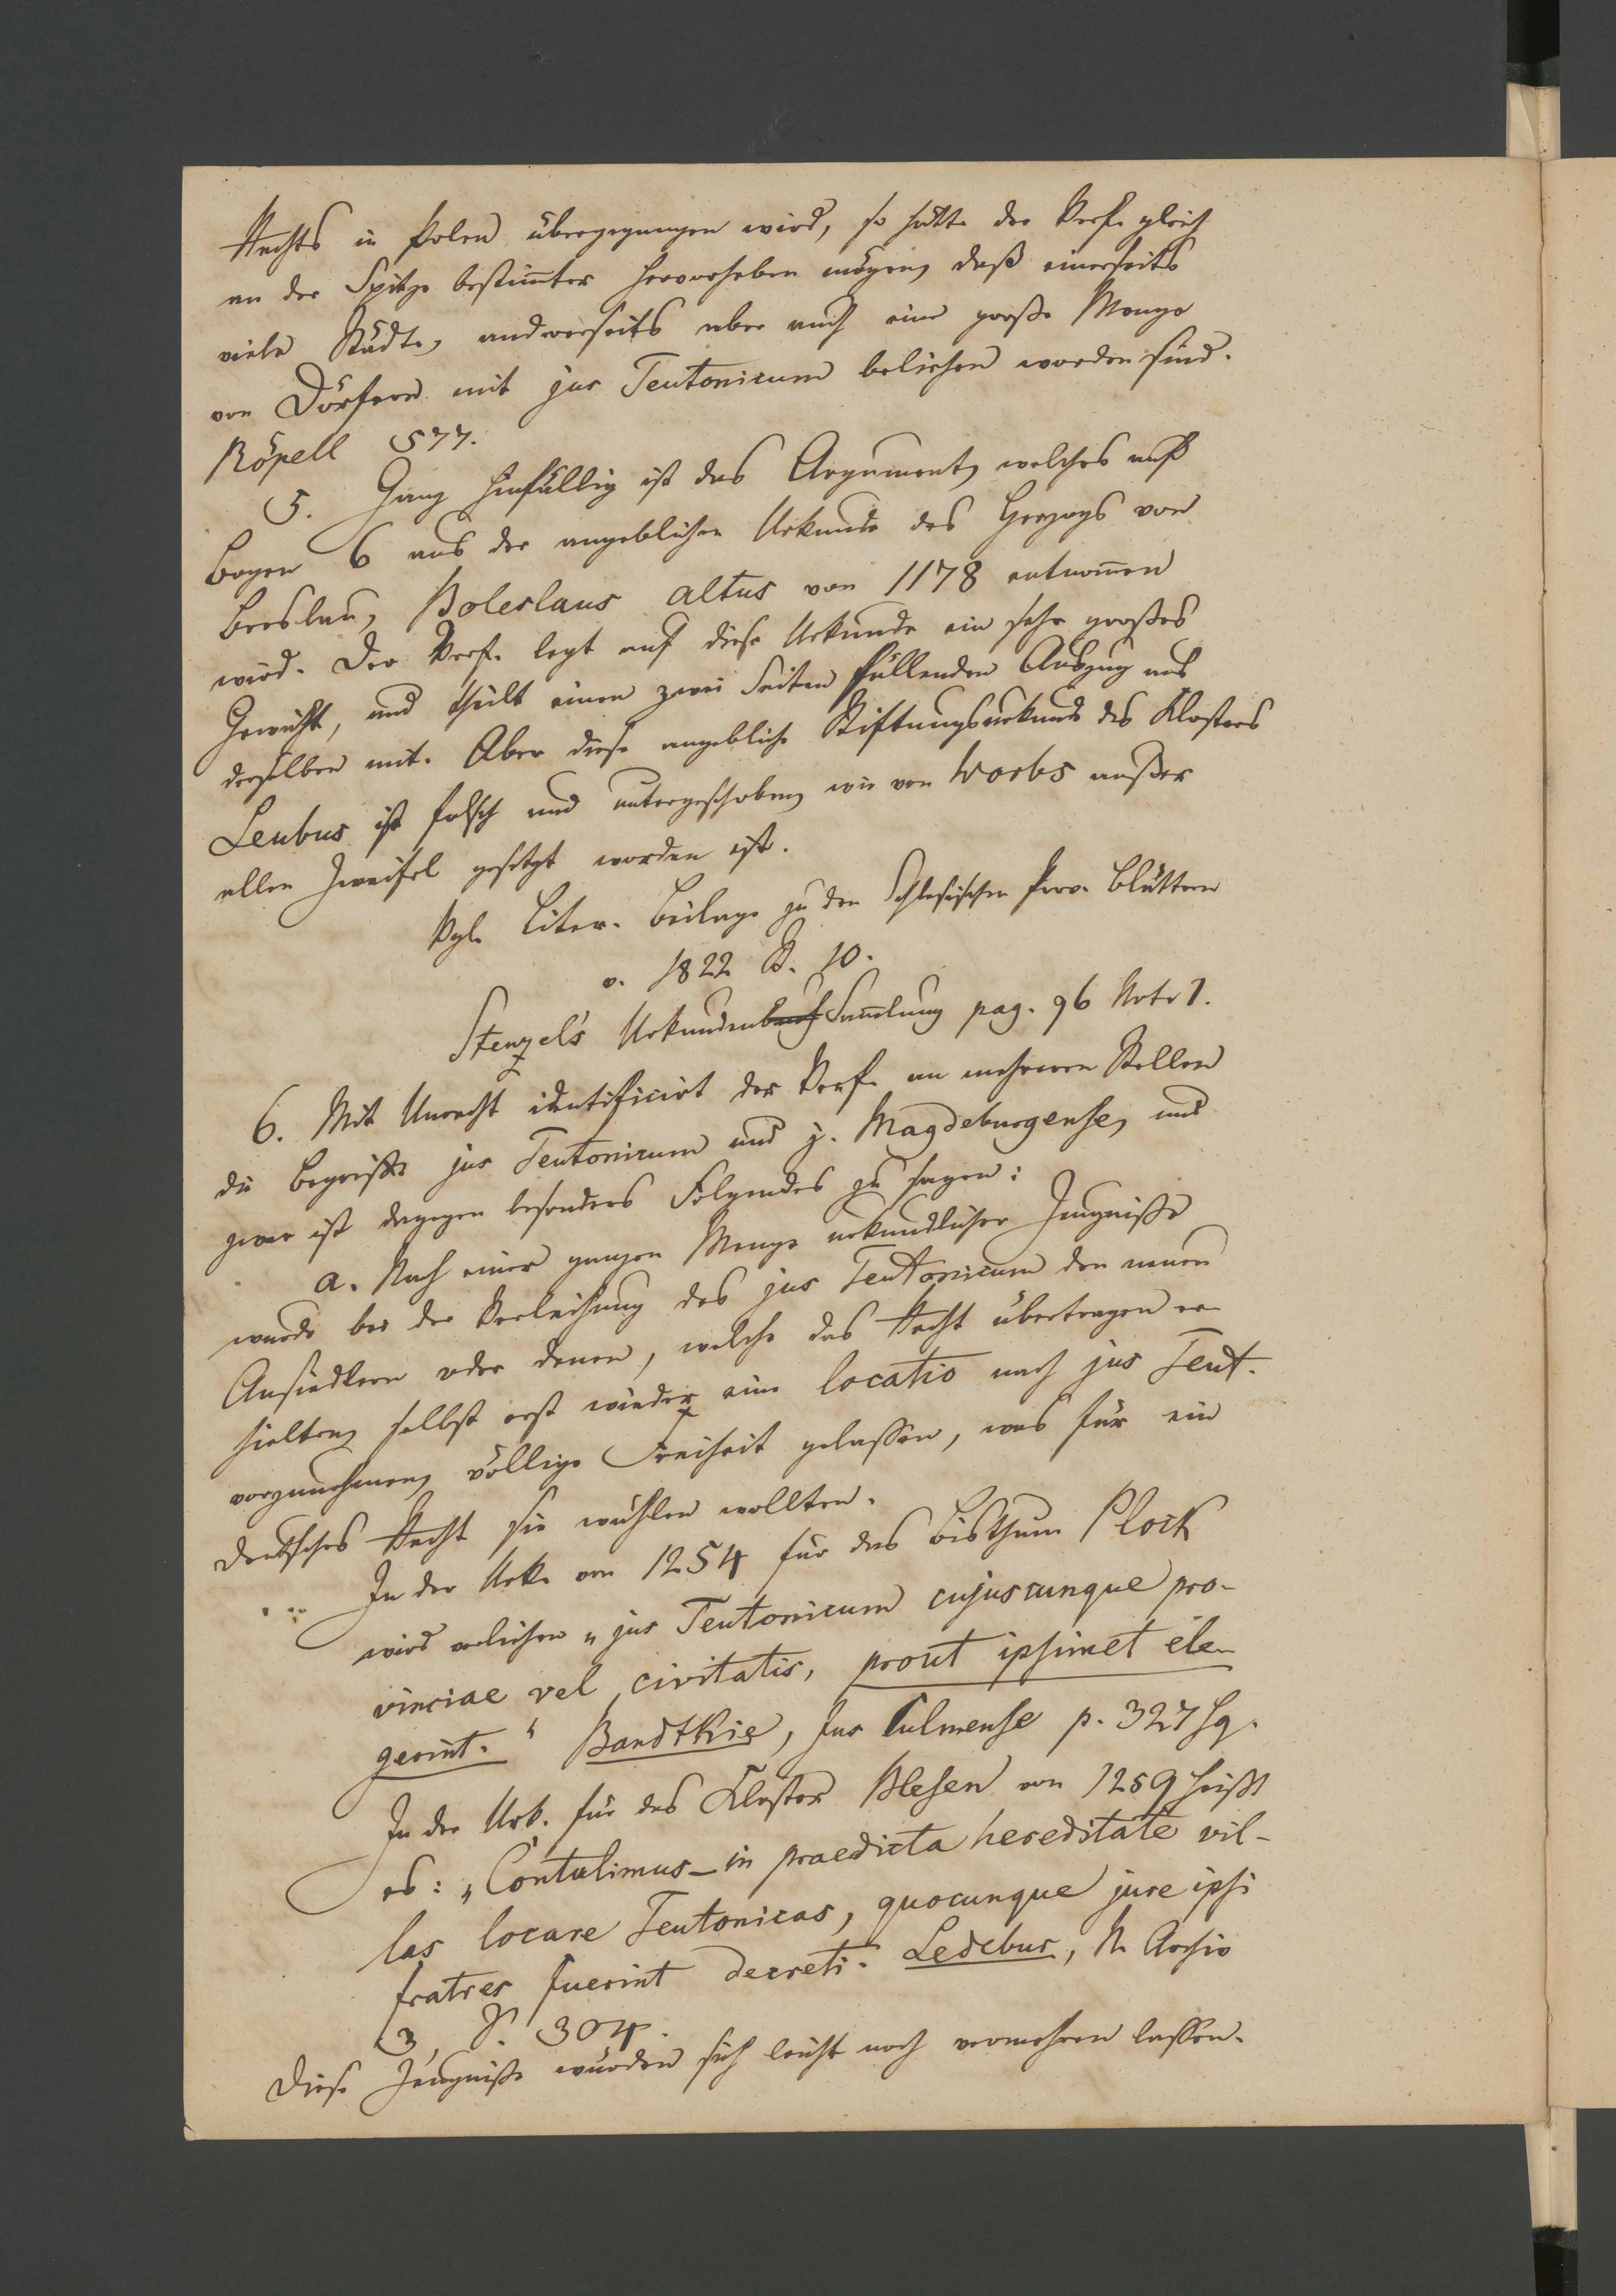 Rechts in Polen übergegangen wird, so hätte der Verf. gleich
an der Spitze bestimter hervorheben mögen, daß einerseits
viele Städte, andererseits aber auch eine große Menge
von Dörfern mit jus Teutonicum beliehen worden sind.
Röpell 577.
5. Ganz hinfällig ist das Argument, welches auf
Bogen 6 aus der angeblichen Urkunde des Herzogs von
Breslau, Boleslaus altus von 1178 entnomen
wird. Der Verf. legt auf diese Urkunde ein sehr großes
Gewicht, und theilt einen zwei Seiten füllenden Auszug aus
derselben mit. Aber diese angebliche Stiftungsurkunde des Klosters
Leubus ist falsch und untergeschoben, wie von Worbs außer
allen Zweifel gesetzt worden ist.
Vgl. Liter. Beilage zu den Schlesischen Prov. Blättern
v. 1822 St. 10.
Stenzel's Urkundenbuch Samlung pag. 96 Note 1.
6. Mit Unrecht identificirt der Verf. an mehreren Stellen
die Begriffe jus Teutonicum und j. Magdeburgense, und
zwar ist dagegen besonders Folgendes zu sagen:
a. Nach einer ganzen Menge urkundlicher Zeugniße
wurde bei der Verleihung des jus Teutonicum den neuen
Ansiedlern oder denen, welche das Recht übertragen er-
hielten, selbst erst wieder eine locatio nach jus Teut.
vorzunehmen, völlige Freiheit gelassen, was für ein
deutsches Recht sie wählen wollten.
In der Urk. von 1254 für das Bisthum Plock
wird verliehen „jus Teutonicum cujuscunque pro-
vinciae vel civitatis, prout ipsimet ele-
gerint." Bandtkie, Jus Culmense p. 327 sq.
In der Urk. für das Kloster Blesen von 1259 heißt
es: „Contulimus – in praedicta hereditate vil-
las locare Teutonicas, quocunque jure ipsi
fratres fuerint decreti. Ledebur, N. Archiv
3, S. 304.
Diese Zeugniße würden sich leicht noch vermehren lassen.